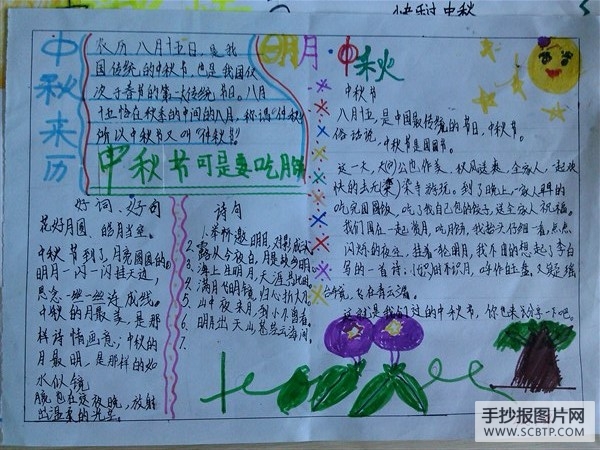 快到中秋
中秋来历
农历八月十五日,是我
国传统的中秋节,也是我国仅
次于春节的第二大传统节日。八月
十五恰在秋季的中间
所以中秋节又叫“仲秋节”
中秋节可是要吃月饼
明月·中秋
中秋节
八月十五,是中国最传统的节日,中秋节。
俗话说,中秋节是团圆节。
这一天,
快的去
吃完团圆饭,吃了我自己包的饺子,送全家人祝福。
我们围在一起赏月,吃月饼,我抬头仔细一看,点点
闪烁的夜空,挂着一轮明月,我不由的想起了李白
写的一首诗:小时不识月,呼作白玉盘,又疑瑶
台镜,飞在青云端。
这就是我们过的中秋节,你也来分享一下吧。
好词、好句
花好月圆、皓月当空。
中秋节到了,月亮圆圆的
明月一闪一闪挂天边,
思念一丝一丝连成线。
中秋的月最美,是那
样诗情画意;中秋的
月最明,是那样的如
水似镜
在这夜晚,放射
出温柔的光芒。
诗句
1. 举杯邀明月,对影成三人
2. 露从今夜白,月是故乡明
3. 海上生明月,天涯共此时
4. 满月飞明镜,归心折大刀。
5. 山中夜来月,到晓不曾看。
6. 明月出天山,苍茫云海间。
7.
手抄报图片网
WWW.SCBTP.COM